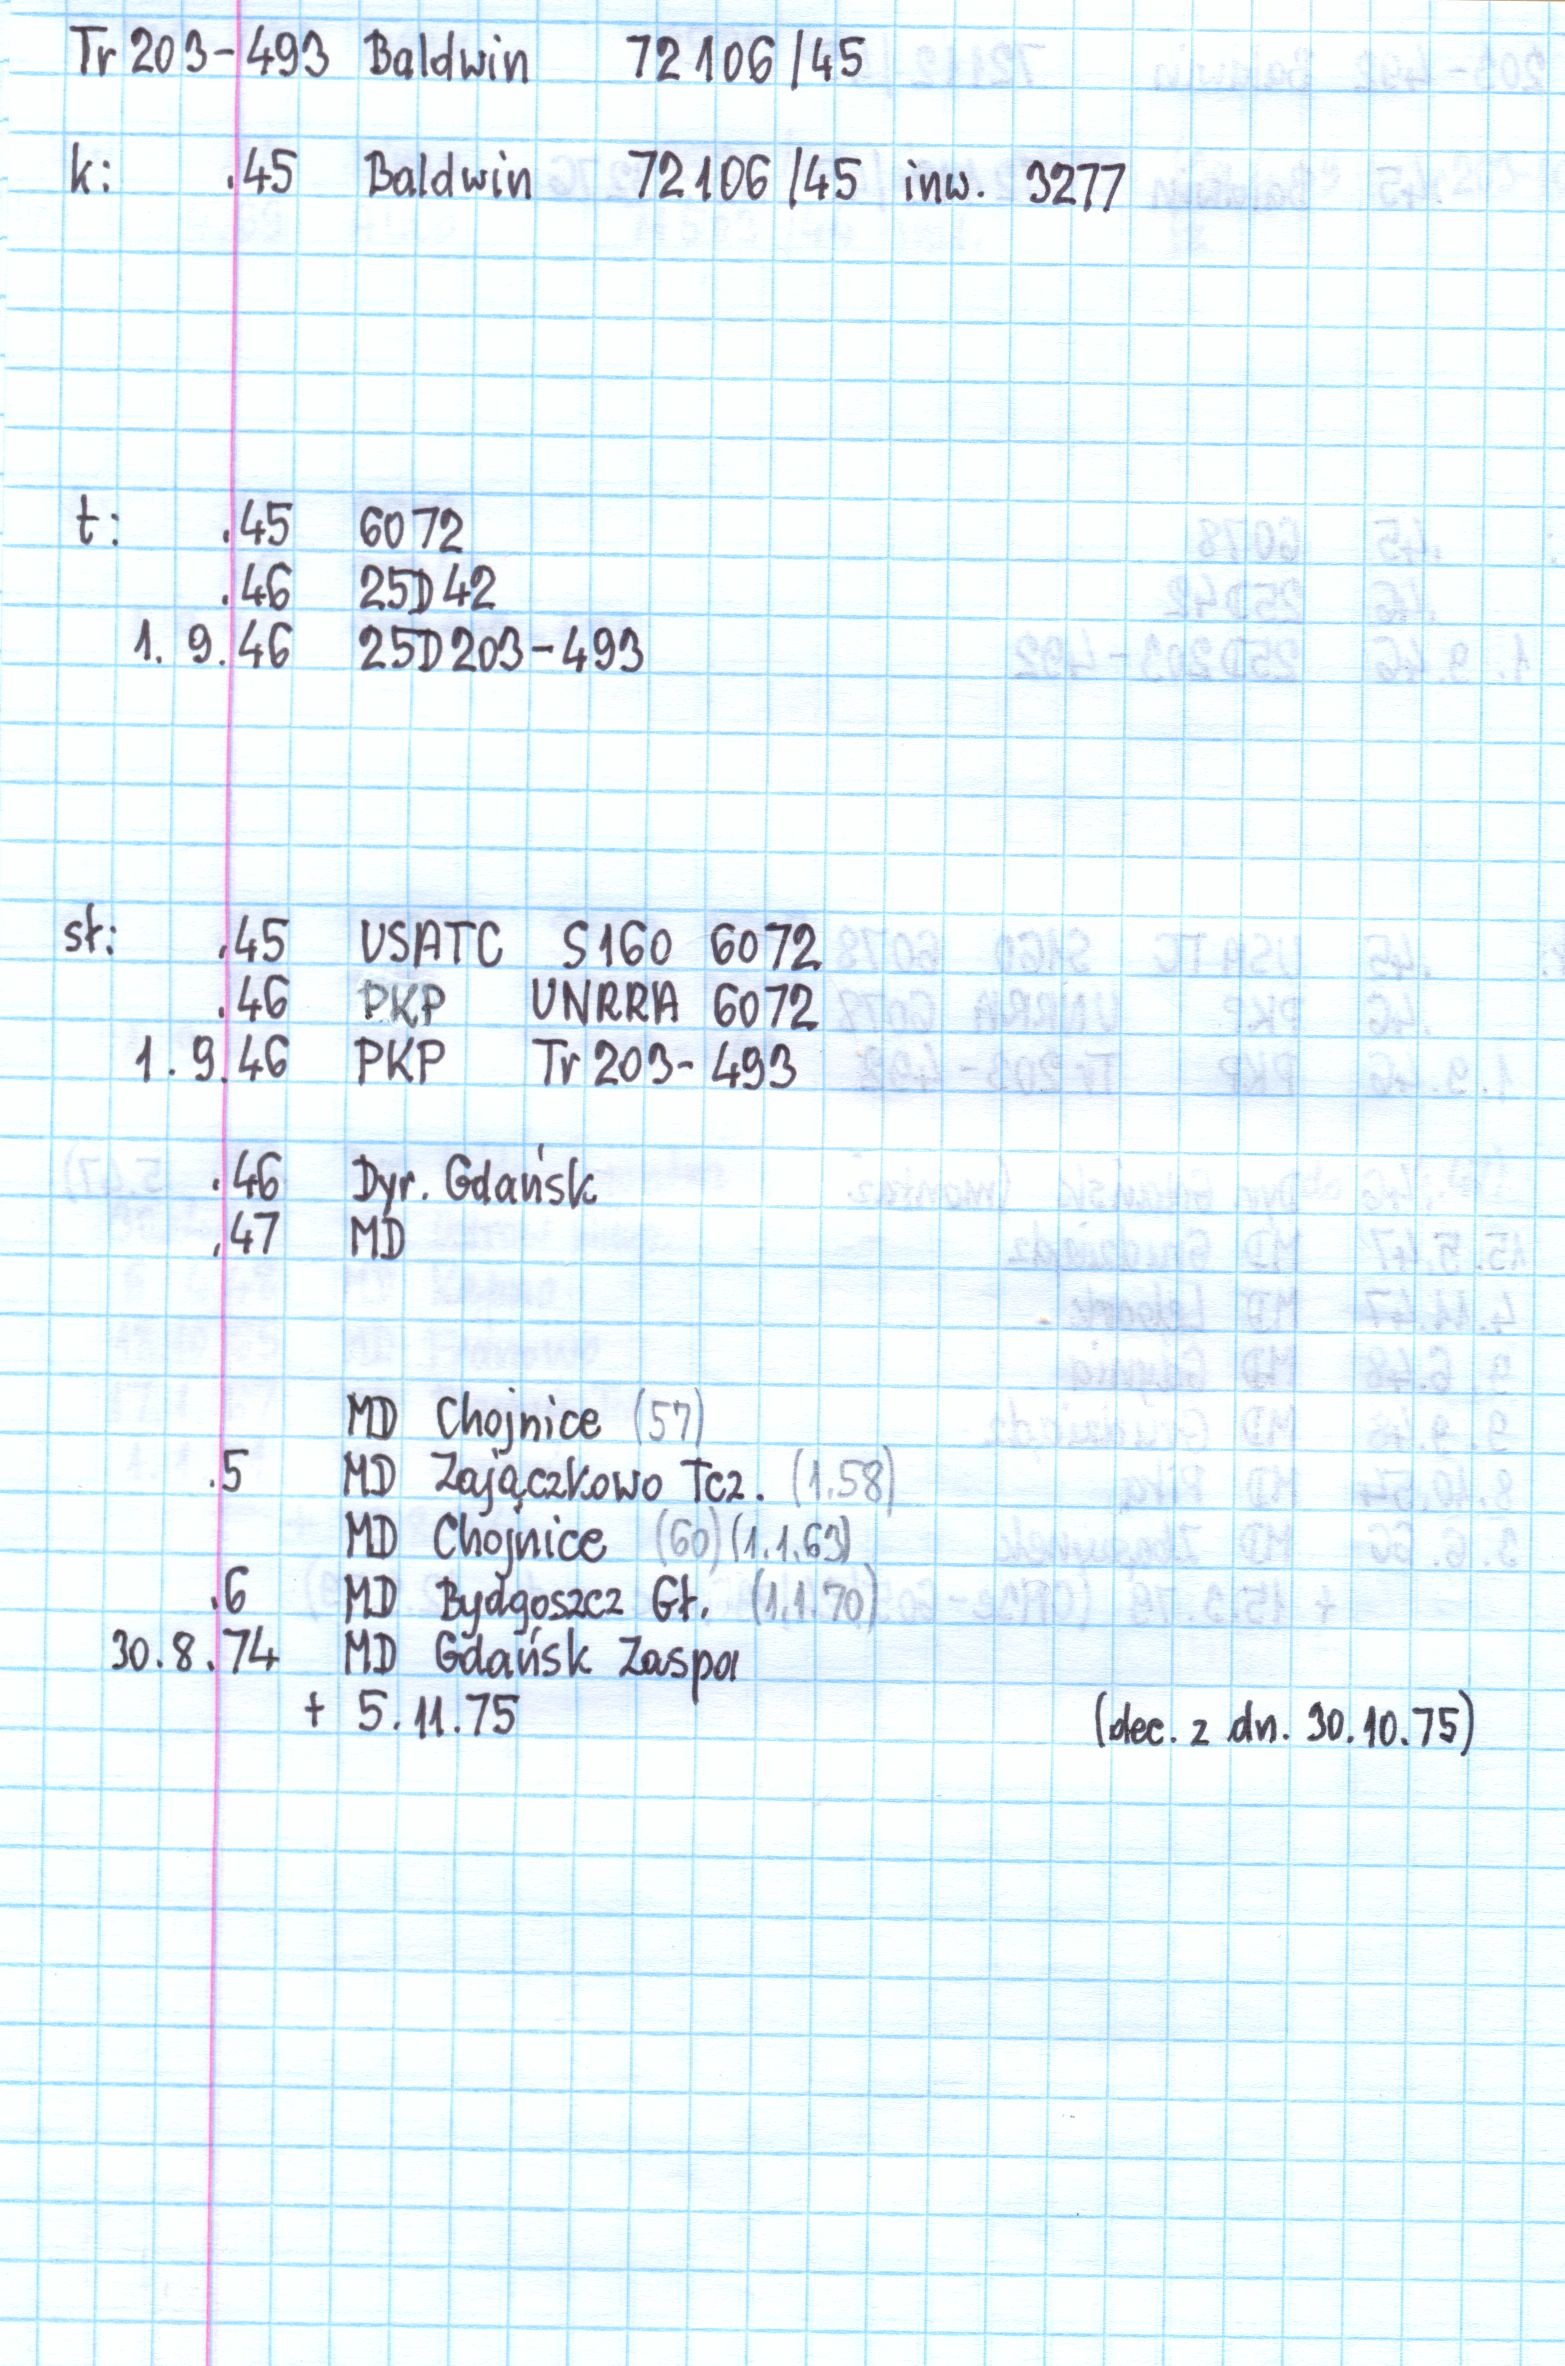 Tr 203-493 Baldwin 72106/45
k: .45 Baldwin 72106/45 inw. 3277
t: .45 6072
.46 25D42
1. 9.46 25D203-493
st: .45 USATC S160 6072
.46 PKP UNRRA 6072
1. 9.46 PKP Tr 203-493
.46 Dyr. Gdańsk
.47 MD
MD Chojnice (57)
.5 MD Zajączkowo Tcz. (1.58)
MD Chojnice (60) (1.1.63)
.6 MD Bydgoszcz Gł. (1.1.70)
30.8.74 MD Gdańsk Zaspa
+ 5.11.75 (dec. z dn. 30.10.75)